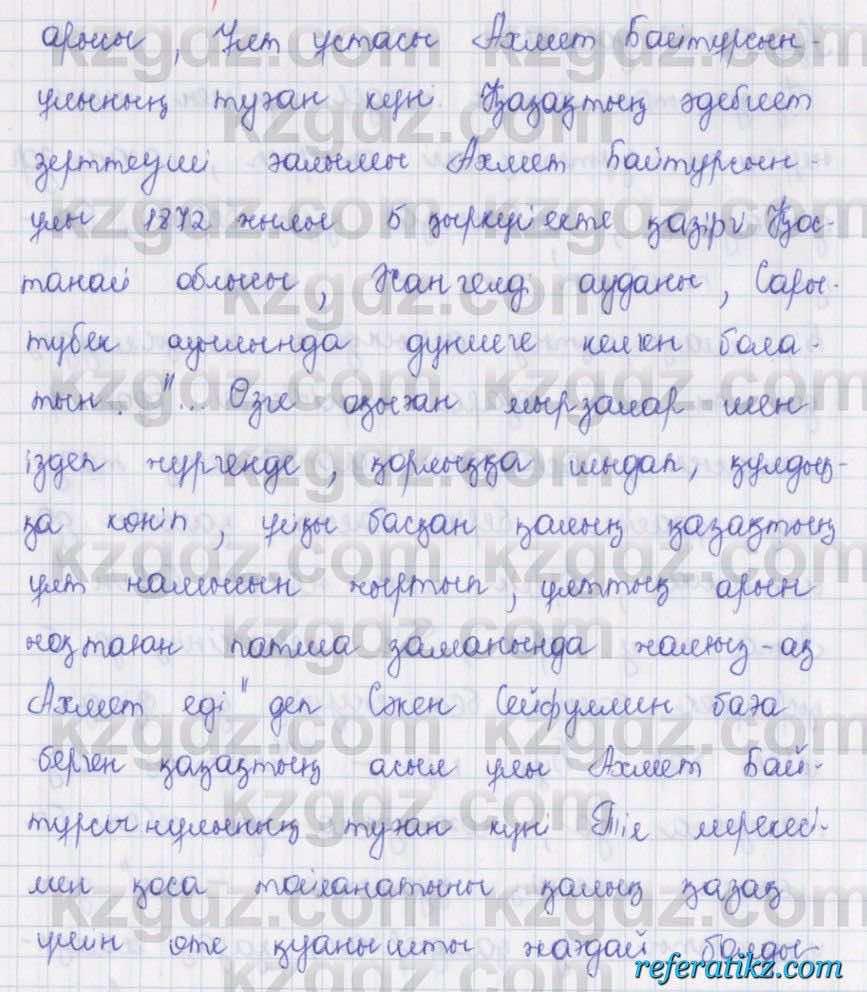 арысы, Ұлт ұстасы Ахмет Байтұрсын-
ұлының туған күні Қазақтың әдебиет
зерттеуші ғалымы Ахмет Байтұрсын-
ұлы 1872 жылы 5 қыркүйекте қазіргі Қос-
танай облысы, Жангелді ауданы, Сары-
түбек ауылында дүниеге келген бола-
тын. "... Өзге оқыған мырзалар шен
іздеп жүргенде, қорлыққа шыдап, құлдық-
қа көніп, ұйқы басқан қалың қазақтың
ұлт намысын жыртып, ұлттық арын
жоқтаған патша заманында жалғыз-ақ
Ахмет еді" деп Сәкен Сейфуллин баға
берген қазақтың асыл ұлы Ахмет Бай-
тұрсынұлының туған күні Тіл мерекесі-
мен қоса тойланатыны қалың қазақ
үшін өте қуанышты жағдай болды-
kzgdz.com
referatikz.com